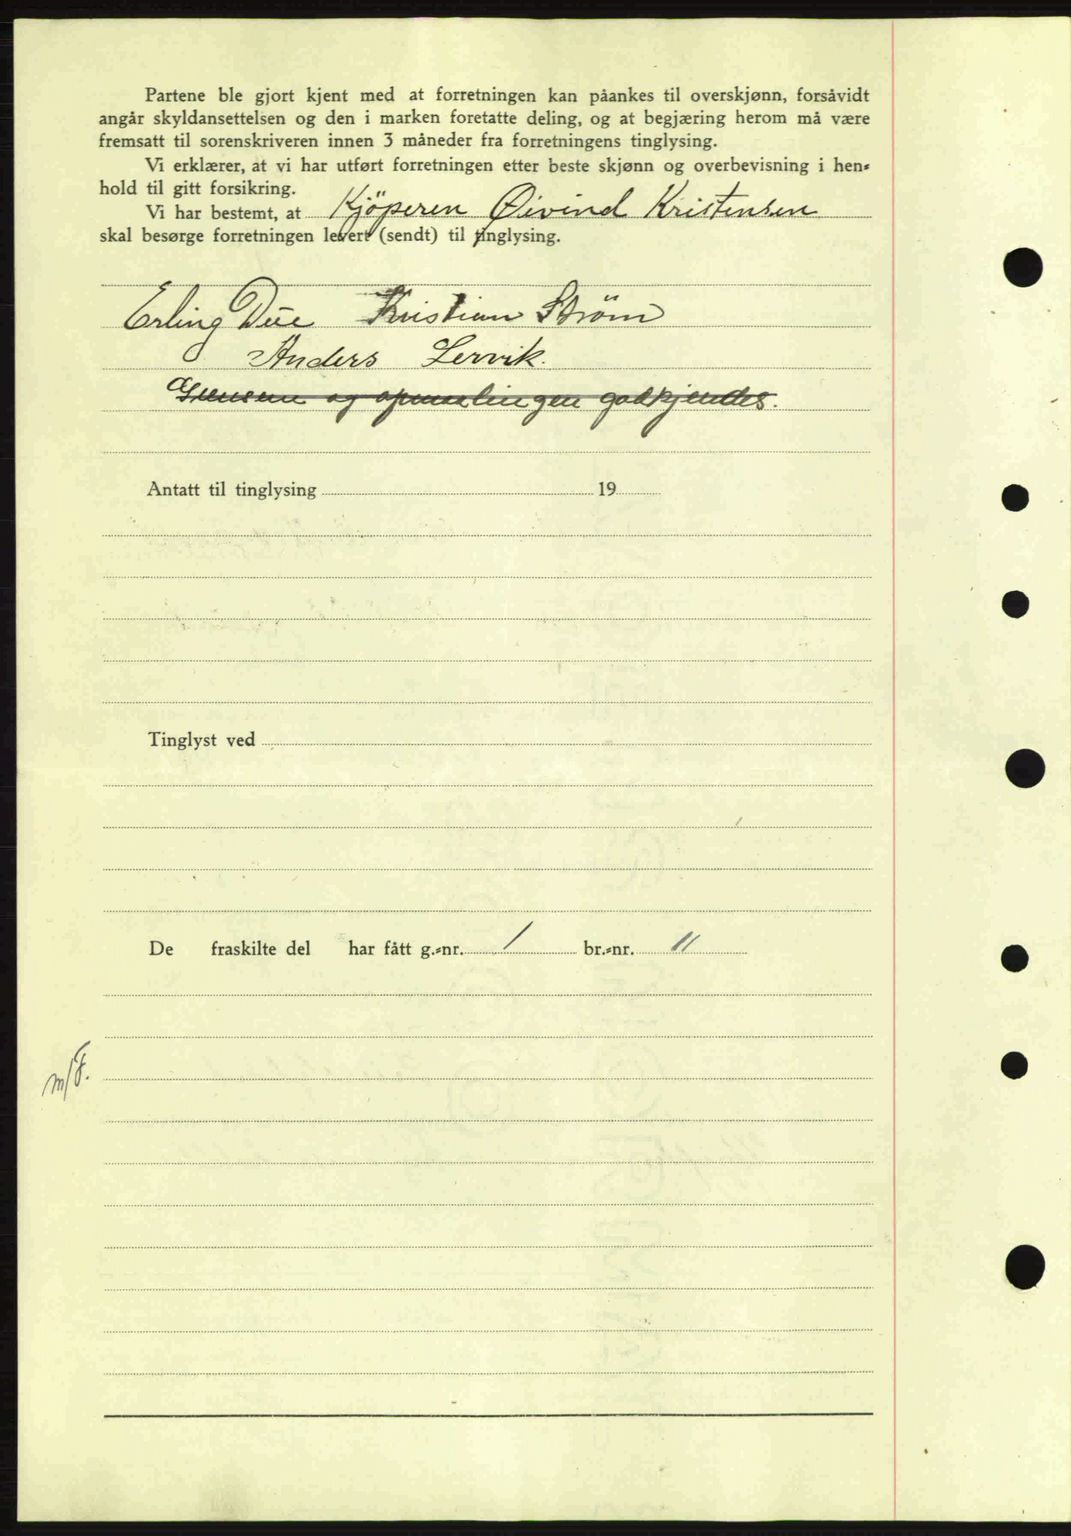 Partene ble gjort kjent med at forretningen kan påankes til overskjønn, forsåvidt
angår skyldansettelsen og den i marken foretatte deling, og at begjæring herom må være
fremsatt til sorenskriveren innen 3 måneder fra forretningens tinglysing.
Vi erklærer, at vi har utført forretningen etter beste skjønn og overbevisning i hen-
hold til gitt forsikring.
Vi har bestemt, at Kjöperen Øivind Kristensen
skal besørge forretningen levert (sendt) til tinglysing.
Erling Due Kristian Ström
Anders Lervik.
Grensene og opmaalingen godkjendes.
Antatt til tinglysing 19
Tinglyst ved
De fraskilte del har fått g.-nr. 1 br.-nr. 11
m/F.